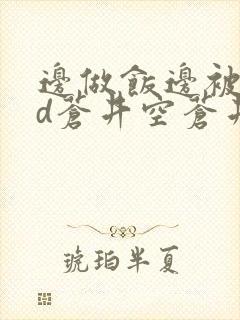 邊做飯邊被
d蒼井空蒼井
琥珀半夏